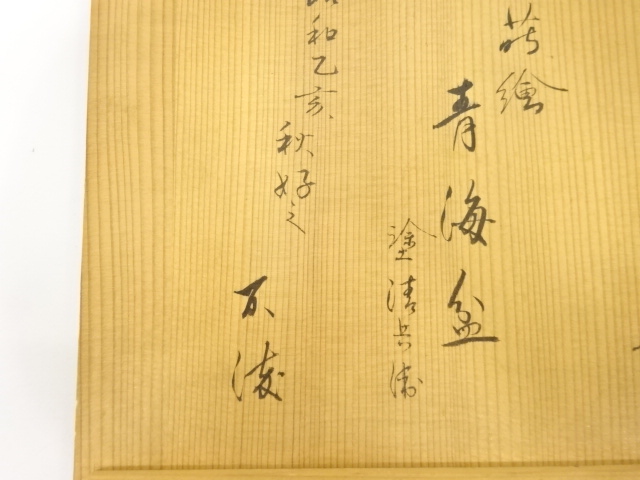 蒔繪
青海盆
塗清兵衛
昭和乙亥秋好之
不